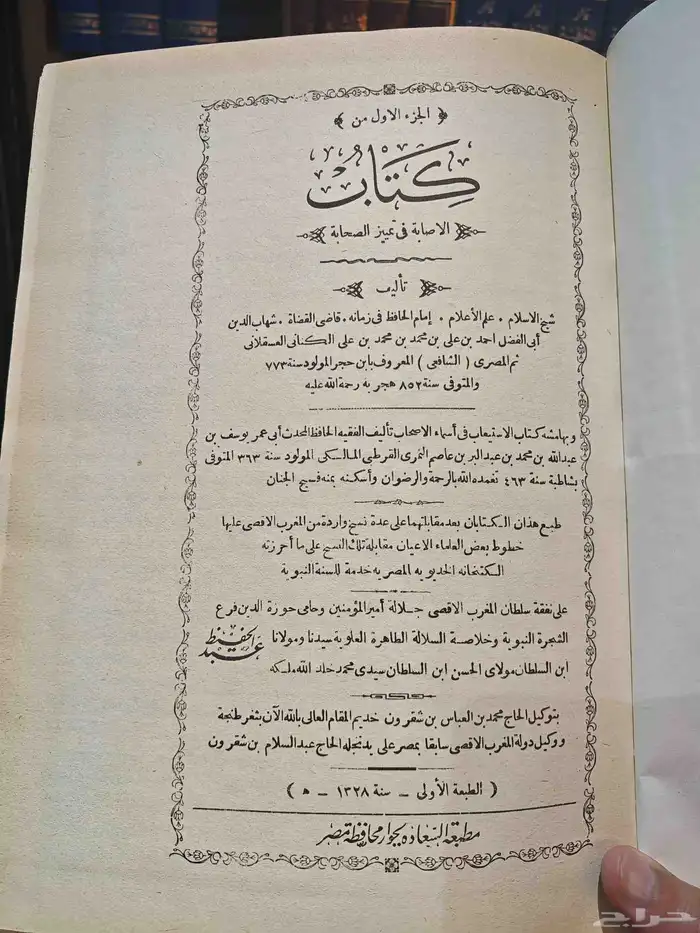 ﴿ الجزء الاول من ﴾
كتاب
الاصابة فى تمييز الصحابة
تأليف
شيخ الاسلام . علم الأعلام . إمام الحافظ فى زمانه . قاضى القضاة . شهاب الدين
أبى الفضل احمد بن على بن محمد بن محمد بن على الكنانى العسقلانى
ثم المصرى ( الشافعى ) المعروف بابن حجر المولود سنة ٧٧٣
والمتوفى سنة ٨٥٢ هجرية رحمة الله عليه
وبهامشه كتاب الاستيعاب فى أسماء الاصحاب تأليف الفقيه الحافظ المحدث أبى عمر يوسف بن
عبدالله بن محمد بن عبدالبر بن عاصم النمرى القرطبى المالكى المولود سنة ٣٦٣ المتوفى
بشاطبة سنة ٤٦٣ تغمده الله بالرحمة والرضوان وأسكنه بمنه فسيح الجنان
طبع هذان الكتابان بعد مقابلتهما على عدة نسخ واردة من المغرب الاقصى عليها
خطوط بعض العلماء الاعيان مقابلة تلك النسخ على ما أحرزته
الكتبخانه الخديويه المصريه خدمة للسنة النبوية
على نفقة سلطان المغرب الاقصى جلالة أمير المؤمنين وحامى حوزة الدين فرع
الشجرة النبوية وخلاصة السلالة الطاهرة العلوية سيدنا ومولانا عبد الحفيظ
ابن السلطان مولاى الحسن ابن السلطان سيدى محمد خلد الله ملكه
بتوكيل الحاج محمد بن العباس بن شقرون خديم المقام العالى بالله الآن بثغر طنجة
ووكيل دولة المغرب الاقصى سابقا بمصر على يد نجله الحاج عبد السلام بن شقرون
( الطبعة الأولى – سنة ١٣٢٨ – ه )
مطبعة السعادة بجوار محافظة مصر
حراج